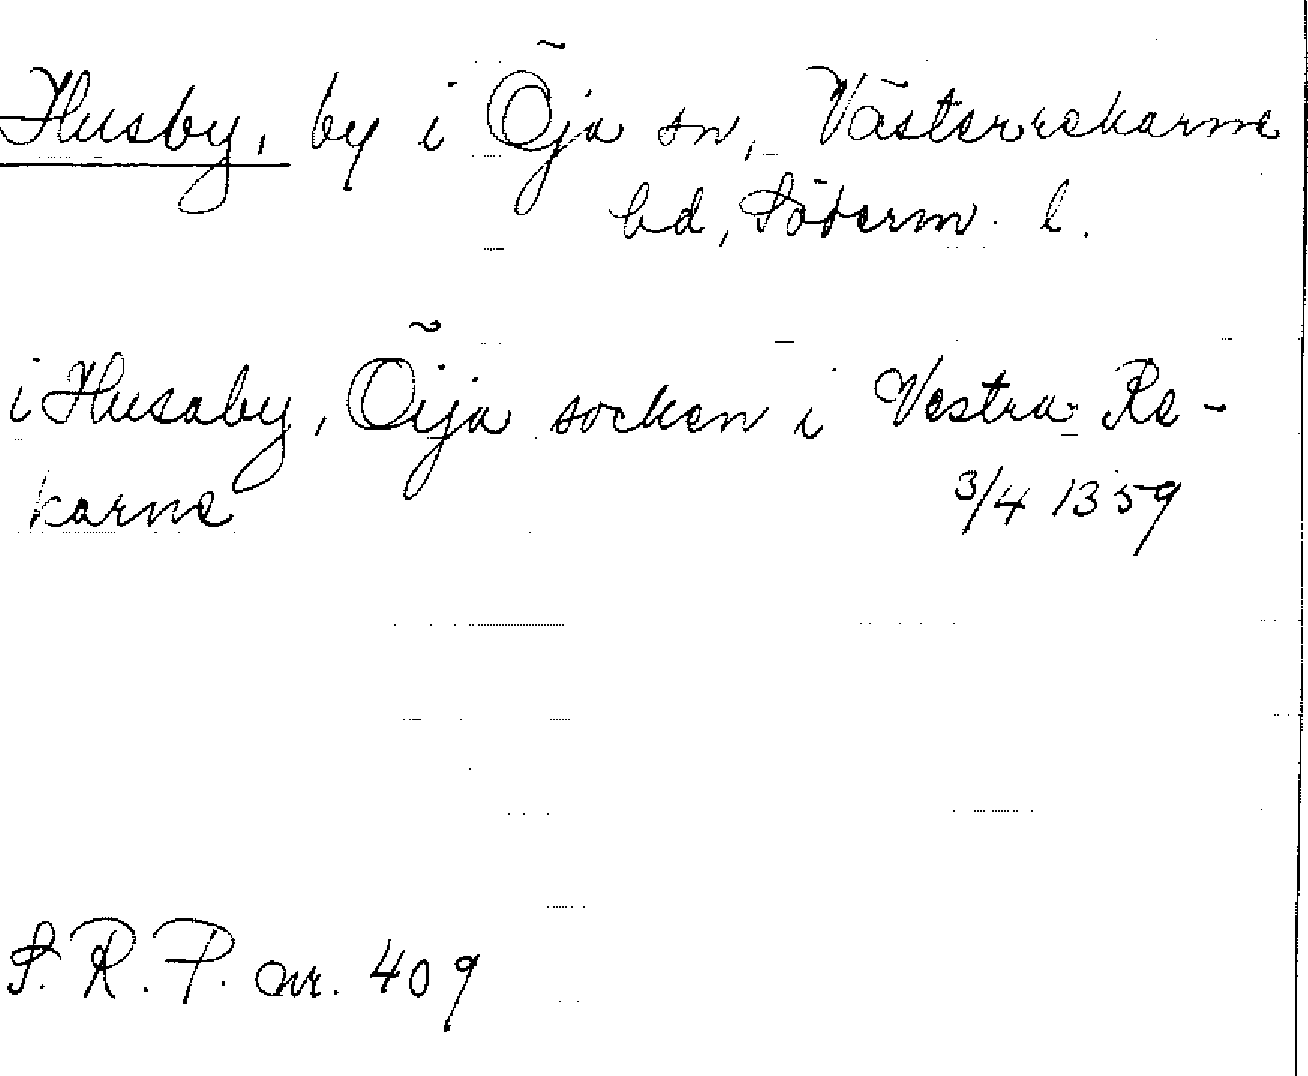 Husby, by i Öja sn, Västerrekarne
hd, Söderm. l.
i Husaby, Öija socken i Vestra Re-
karne 3/4 1359
S.R.P. nr. 409